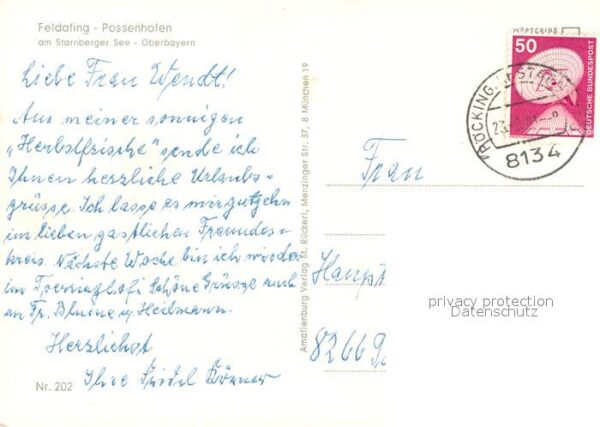 Feldafing - Possenhofen
am Starnberger See - Oberbayern
Liebe Frau Wendt!
Aus meiner sonnigen
„Herbstfrische" sende ich
Ihnen herzliche Urlaubs-
grüsse. Ich lasse es mir gutgehn
im lieben gastlichen Freundes-
kreis. Nächste Woche bin ich wieder
im Schöne Grüsse auch
an Fr. Blume u. Heilmann.
Herzlichst
Ihre
Nr. 202
Amalienburg Verlag M. Rückerl, Menzinger Str. 37, 8 München 19
50
DEUTSCHE BUNDESPOST
PÖCKING
8134
Frau
Haupt
8266
privacy protection
Datenschutz